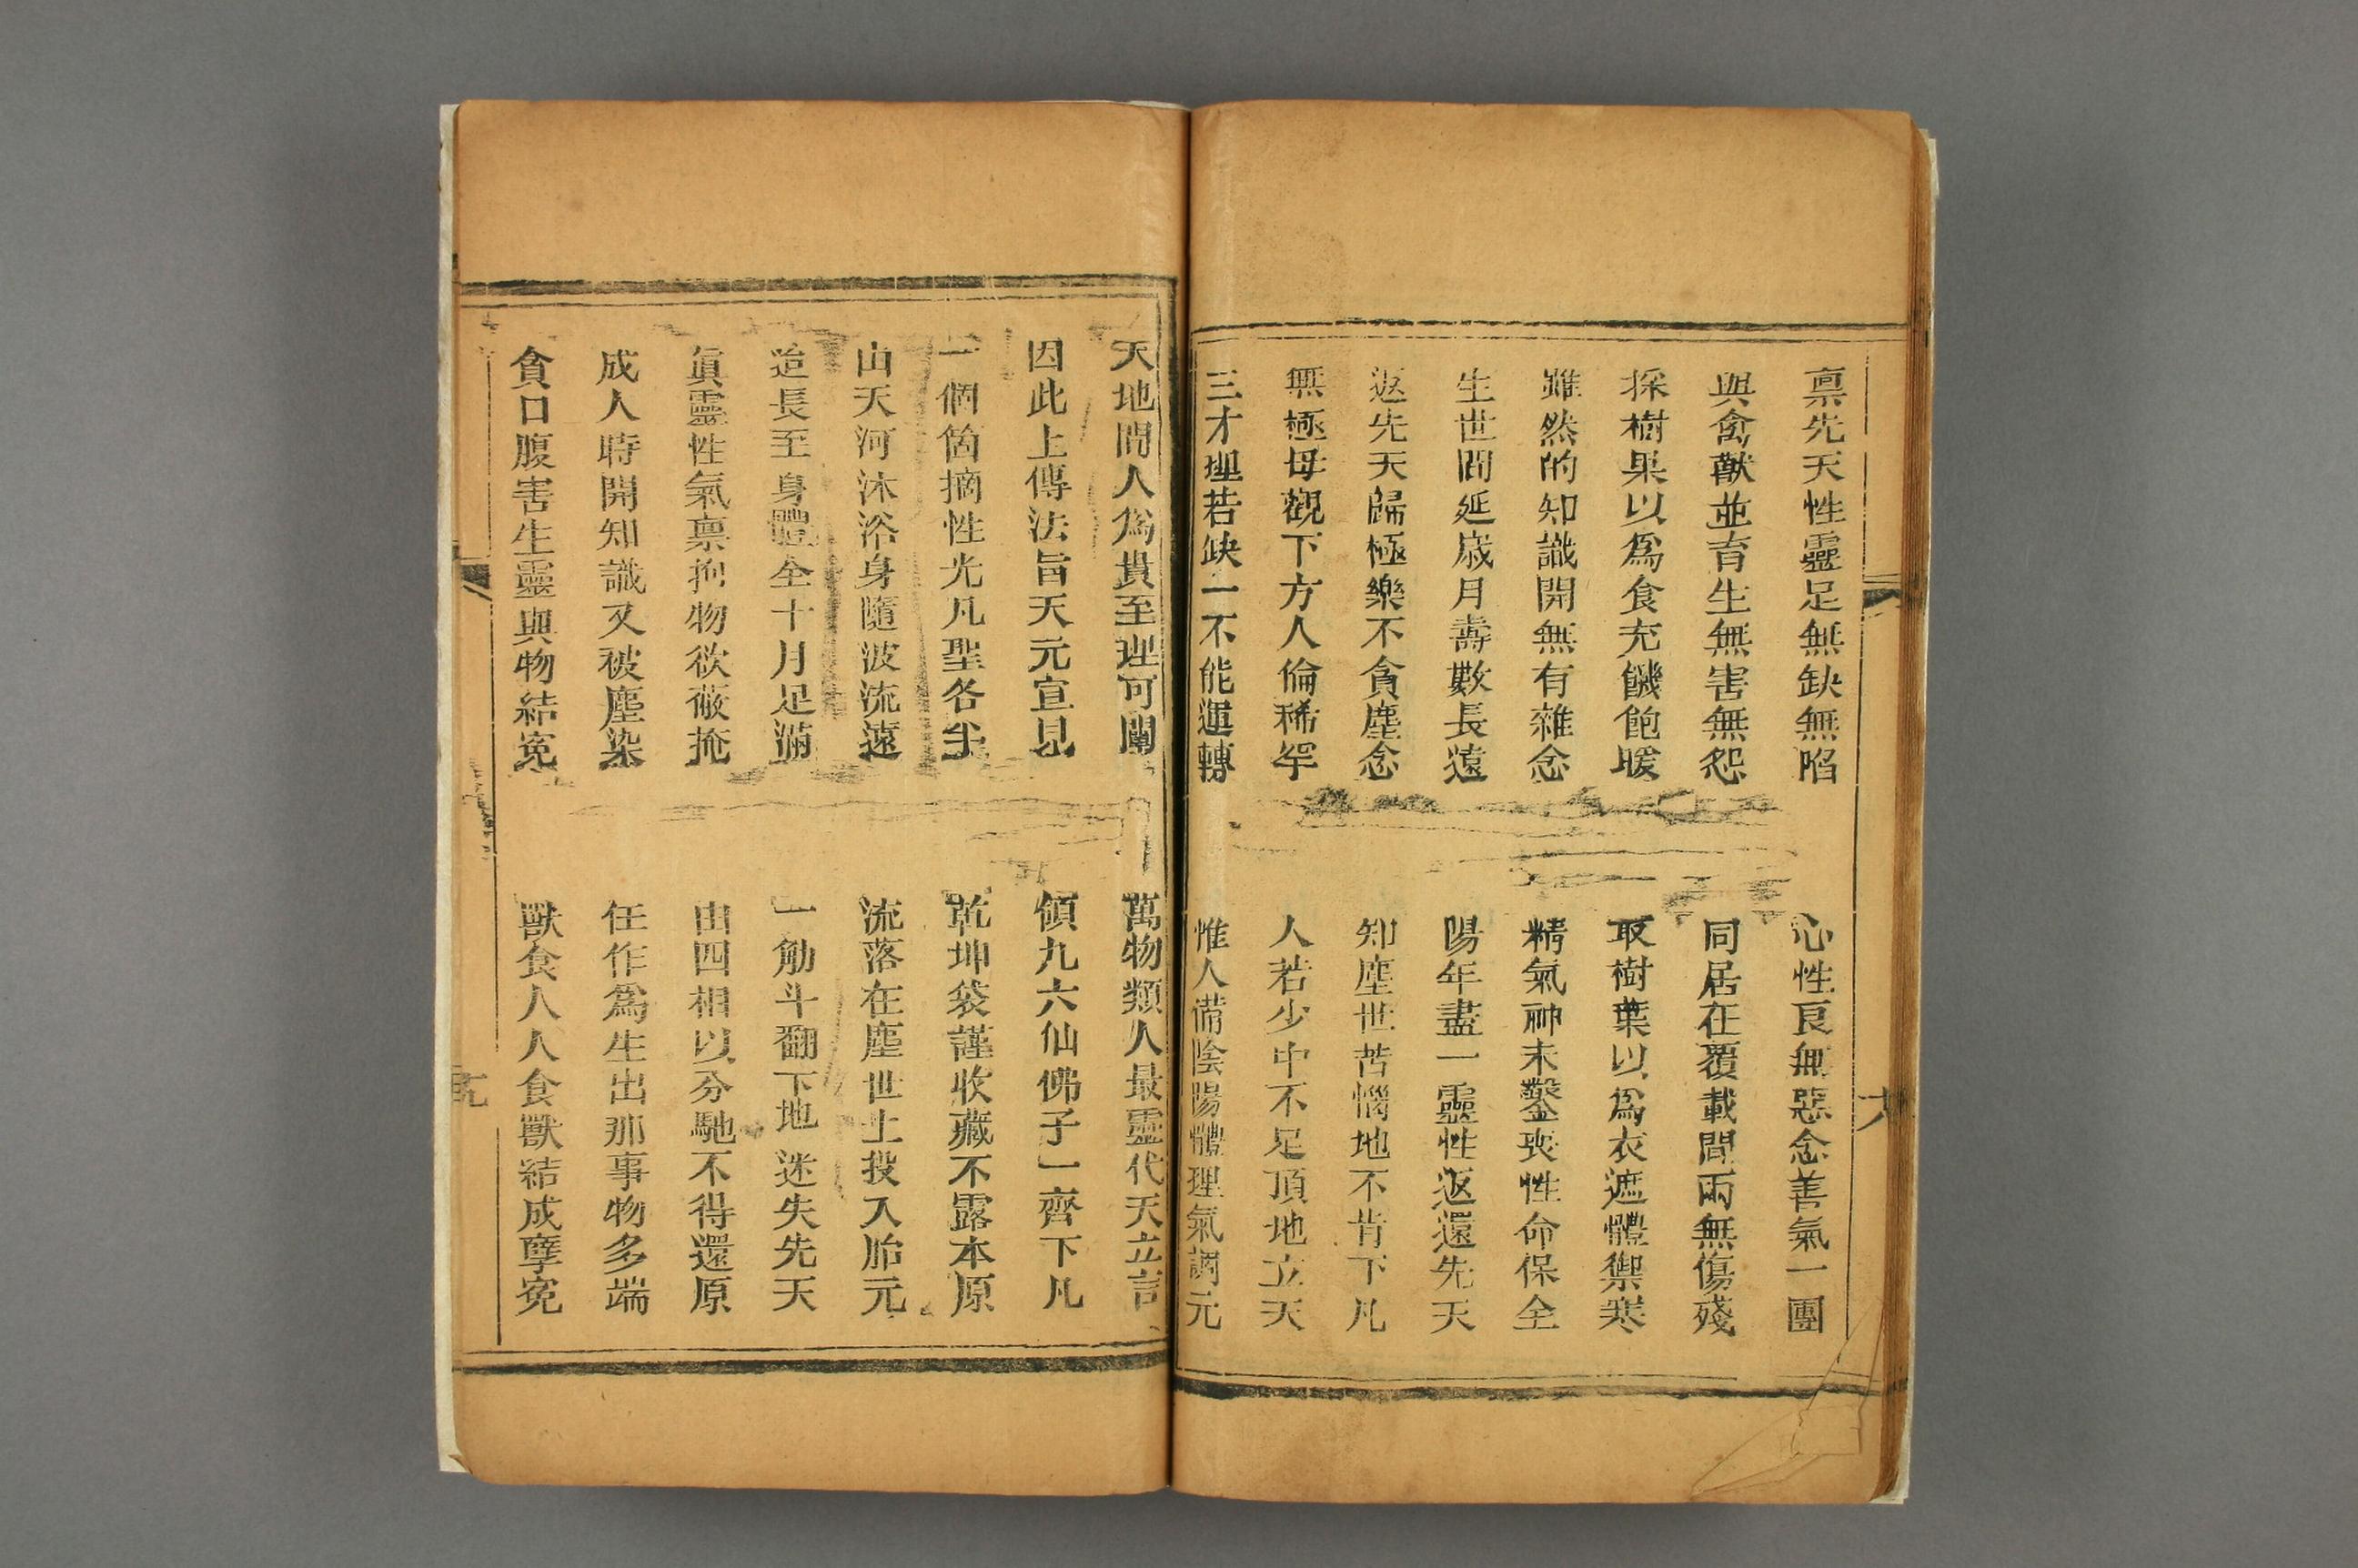 禀先天性靈足無缺無陷　心性良無惡念善氣一團
與禽獸並育生無害無怨　同居在覆載間兩無傷殘
採樹果以爲食充饑飽暖　取樹葉以爲衣遮體禦寒
雖然的知識開無有雜念　精氣神未鑿喪性命保全
生世間延歲月壽數長遠　陽年盡一靈性返還先天
返先天歸極樂不貪塵念　知塵世苦惱地不肯下凡
無極母觀下方人倫稀罕　人若少中不足頂地立天
三才理若缺一不能運轉　惟人備陰陽體理氣調元
六
天地間人爲貴至理可闡　萬物類人最靈代天立言
因此上傳法旨天元宣見　領九六仙佛子一齊下凡
一個箇摘性光凡聖各半　乾坤袋謹收藏不露本原
山天河沐浴身隨波流遠　流落在塵世土投入胎元
造長至身體全十月足滿　一觔斗翻下地迷失先天
眞靈性氣禀拘物欲蔽掩　由四相以分馳不得還原
成人時開知識又被塵染　任作爲生出那事物多端
貪口腹害生靈與物結寃　獸食人人食獸結成孽寃